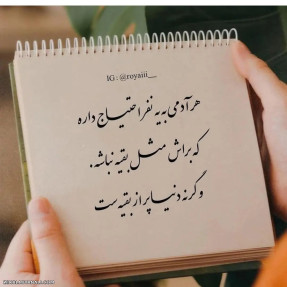 IG : @royaiii__
هر آدمی به یه نفر احتیاج داره
که براش مثل بقیه نباشه.
وگرنه دنیا پر از بقیه ست